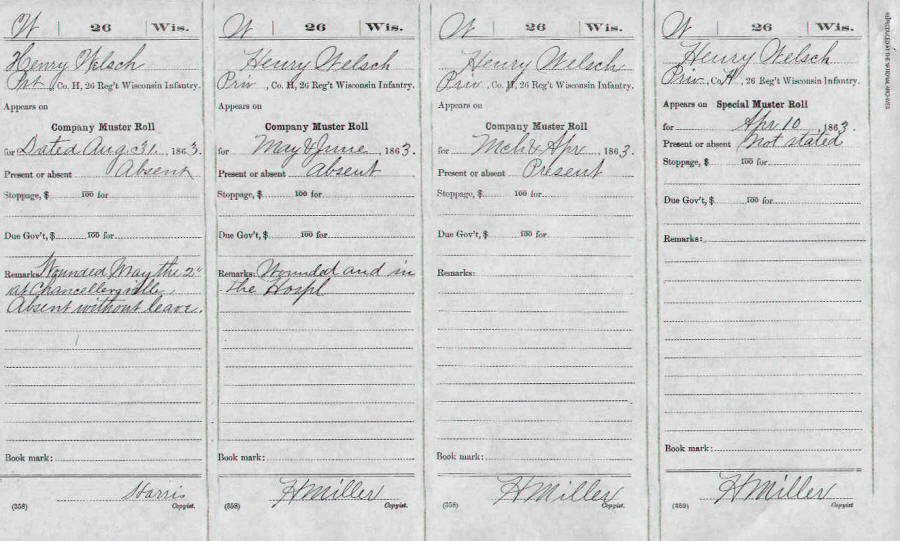 W | 26 | Wis.
Henry Welsch
Pvt, Co. H, 26 Reg't Wisconsin Infantry.
Appears on
Company Muster Roll
for Dated Aug 31, 1863.
Present or absent Absent
Stoppage, $ 100 for
Due Gov't, $ 100 for
Remarks: Wounded May the 2"
at Chancellersville
Absent without leave.
Book mark:
Harris
(358) Copyist.
W | 26 | Wis.
Henry Welsch
Priv, Co. H, 26 Reg't Wisconsin Infantry.
Appears on
Company Muster Roll
for May & June, 1863.
Present or absent Absent
Stoppage, $ 100 for
Due Gov't, $ 100 for
Remarks: Wounded and in
the Hospl
Book mark:
H Miller
(358) Copyist.
W | 26 | Wis.
Henry Welsch
Priv, Co. H, 26 Reg't Wisconsin Infantry.
Appears on
Company Muster Roll
for Mch & Apr, 1863.
Present or absent Present
Stoppage, $ 100 for
Due Gov't, $ 100 for
Remarks:
Book mark:
H Miller
(358) Copyist.
W | 26 | Wis.
Henry Welsch
Priv, Co. H, 26 Reg't Wisconsin Infantry.
Appears on Special Muster Roll
for Apr 10, 1863.
Present or absent Not stated
Stoppage, $ 100 for
Due Gov't, $ 100 for
Remarks:
Book mark:
H Miller
(359) Copyist.
REPRODUCED AT THE NATIONAL ARCHIVES